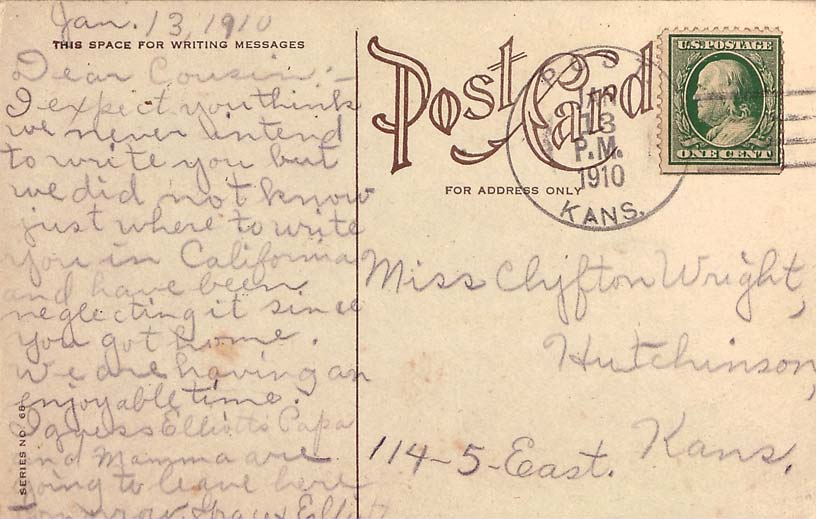 Jan. 13, 1910
THIS SPACE FOR WRITING MESSAGES
Dear Cousin:-
I expect you think
we never intend
to write you but
we did not know
just where to write
you in California
and have been
neglecting it since
you got home.
We are having an
enjoyable time.
I guess Elliott's Papa
and Mamma are
going to leave here
SERIES NO. 68
Post Card
FOR ADDRESS ONLY
13
P.M.
1910
KANS.
U.S. POSTAGE
ONE CENT
Miss Clyfton Wright,
Hutchinson,
Kans.
114-5-East.